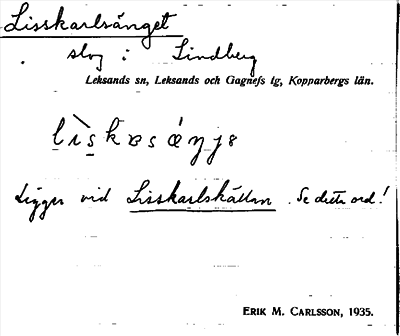 Lisskarlsänget
slog i Lindberg
Leksands sn, Leksands och Gagnefs tg, Kopparbergs län.
Ligger vid Lisskarlskällan. Se detta ord!
ERIK M. CARLSSON, 1935.